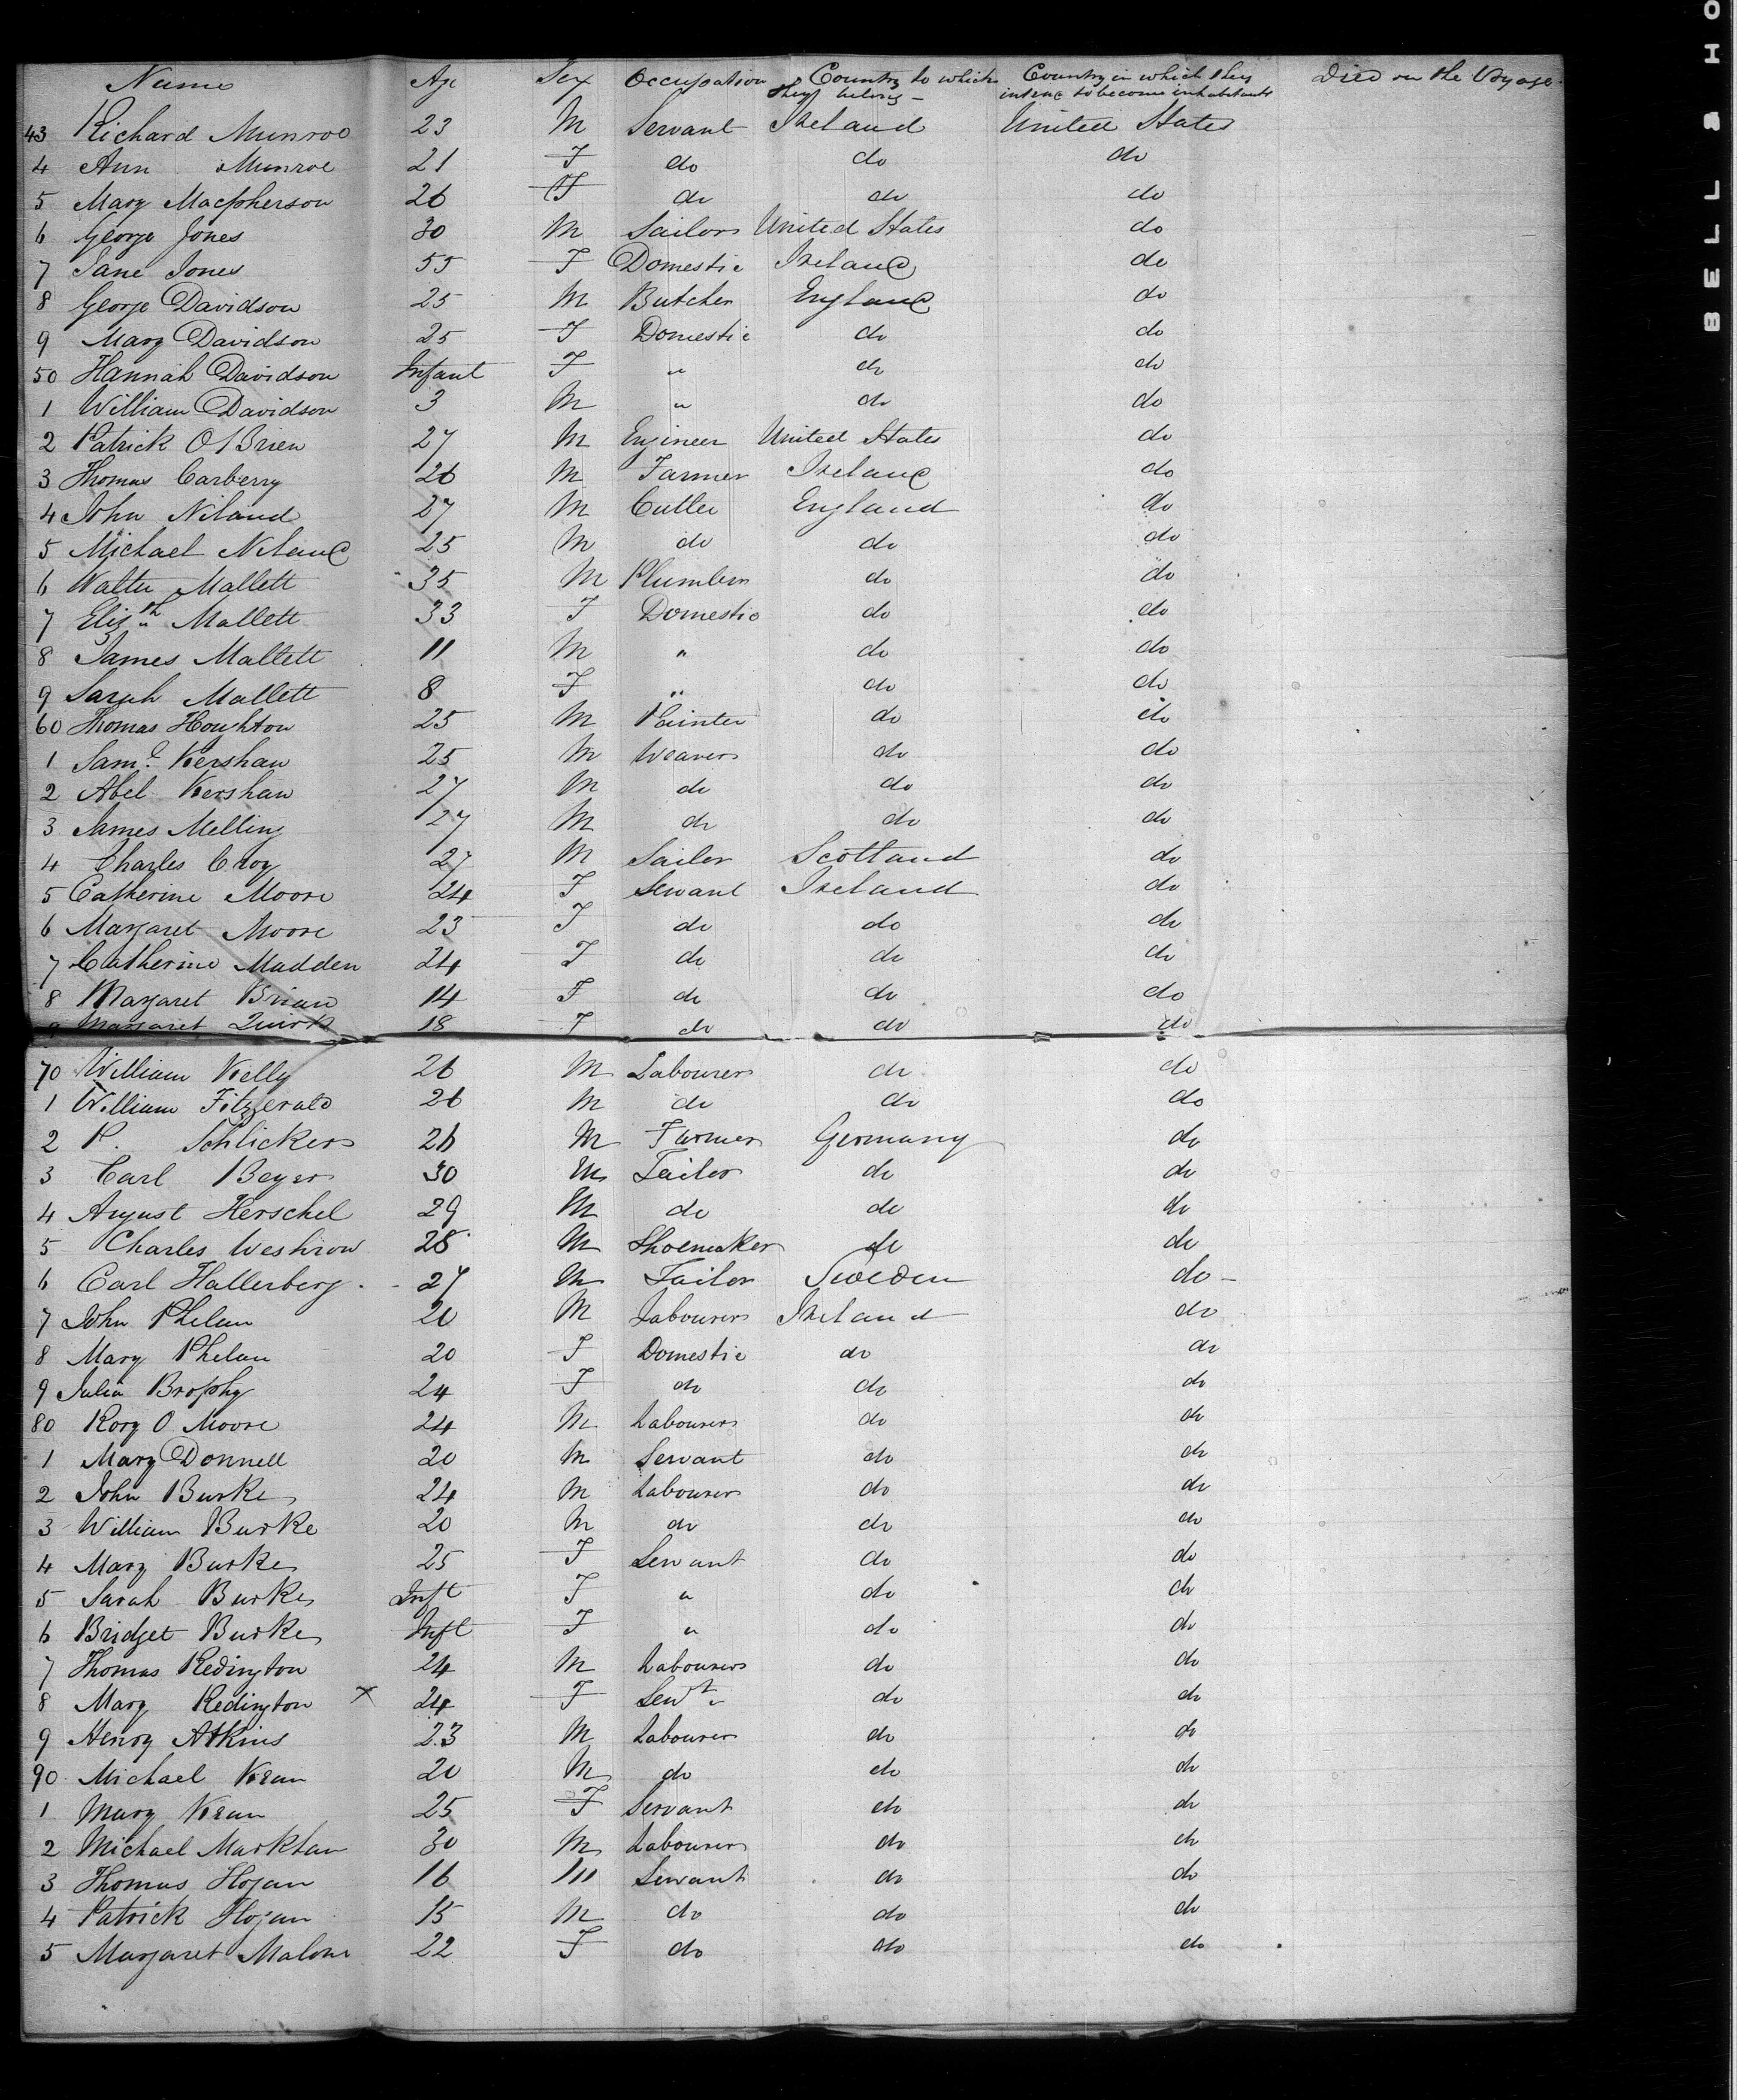 Name Age Sex Occupation Country to which they belong - Country in which they intend to become inhabitants Died on the Voyage.
43 Richard Munroe 23 M Servant Ireland United States
4 Ann Munroe 21 F do do do
5 Mary Macpherson 26 F do do do
6 George Jones 30 M Sailor United States do
7 Jane Jones 55 F Domestic Ireland do
8 George Davidson 25 M Butcher England do
9 Mary Davidson 25 F Domestic do do
50 Hannah Davidson Infant F " do do
1 William Davidson 3 M " do do
2 Patrick O'Brien 27 M Engineer United States do
3 Thomas Carberry 26 M Farmer Ireland do
4 John Niland 27 M Cutler England do
5 Michael Niland 25 M do do do
6 Walter Mallett 35 M Plumber do do
7 Elizth Mallett 33 F Domestic do do
8 James Mallett 11 M " do do
9 Sarah Mallett 8 F " do do
60 Thomas Houghton 25 M Painter do do
1 Saml. Kershaw 25 M Weaver do do
2 Abel Kershaw 27 M do do do
3 James Melling 27 M do do do
4 Charles Croy 27 M Sailor Scotland do
5 Catherine Moore 24 F Servant Ireland do
6 Margaret Moore 23 F do do do
7 Catherine Madden 24 F do do do
8 Margaret Brian 14 F do do do
9 Margaret Quirk 18 F do do do
70 William Kelly 26 M Labourer do do
1 William Fitzgerald 26 M do do do
2 P. Schlicker 26 M Farmer Germany do
3 Carl Beyer 30 M Tailor do do
4 August Herschel 29 M do do do
5 Charles 28 M Shoemaker do do
6 Carl Hallerberg 27 M Tailor Sweden do -
7 John Phelan 20 M Labourer Ireland do
8 Mary Phelan 20 F Domestic do do
9 Julia Brophy 24 F do do do
80 Rory O Moore 24 M Labourer do do
1 Mary Donnell 20 M Servant do do
2 John Burke 24 M Labourer do do
3 William Burke 20 M do do do
4 Mary Burke 25 F Servant do do
5 Sarah Burke Inft F " do do
6 Bridget Burke Inft F " do do
7 Thomas Redington 24 M Labourer do do
8 Mary Redington x 24 F Servt do do
9 Henry Atkins 23 M Labourer do do
90 Michael Kean 20 M do do do
1 Mary Kean 25 F Servant do do
2 Michael Markham 30 M Labourer do do
3 Thomas Hogan 16 M Servant do do
4 Patrick Hogan 15 M do do do
5 Margaret Malone 22 F do do do
BELL & HO